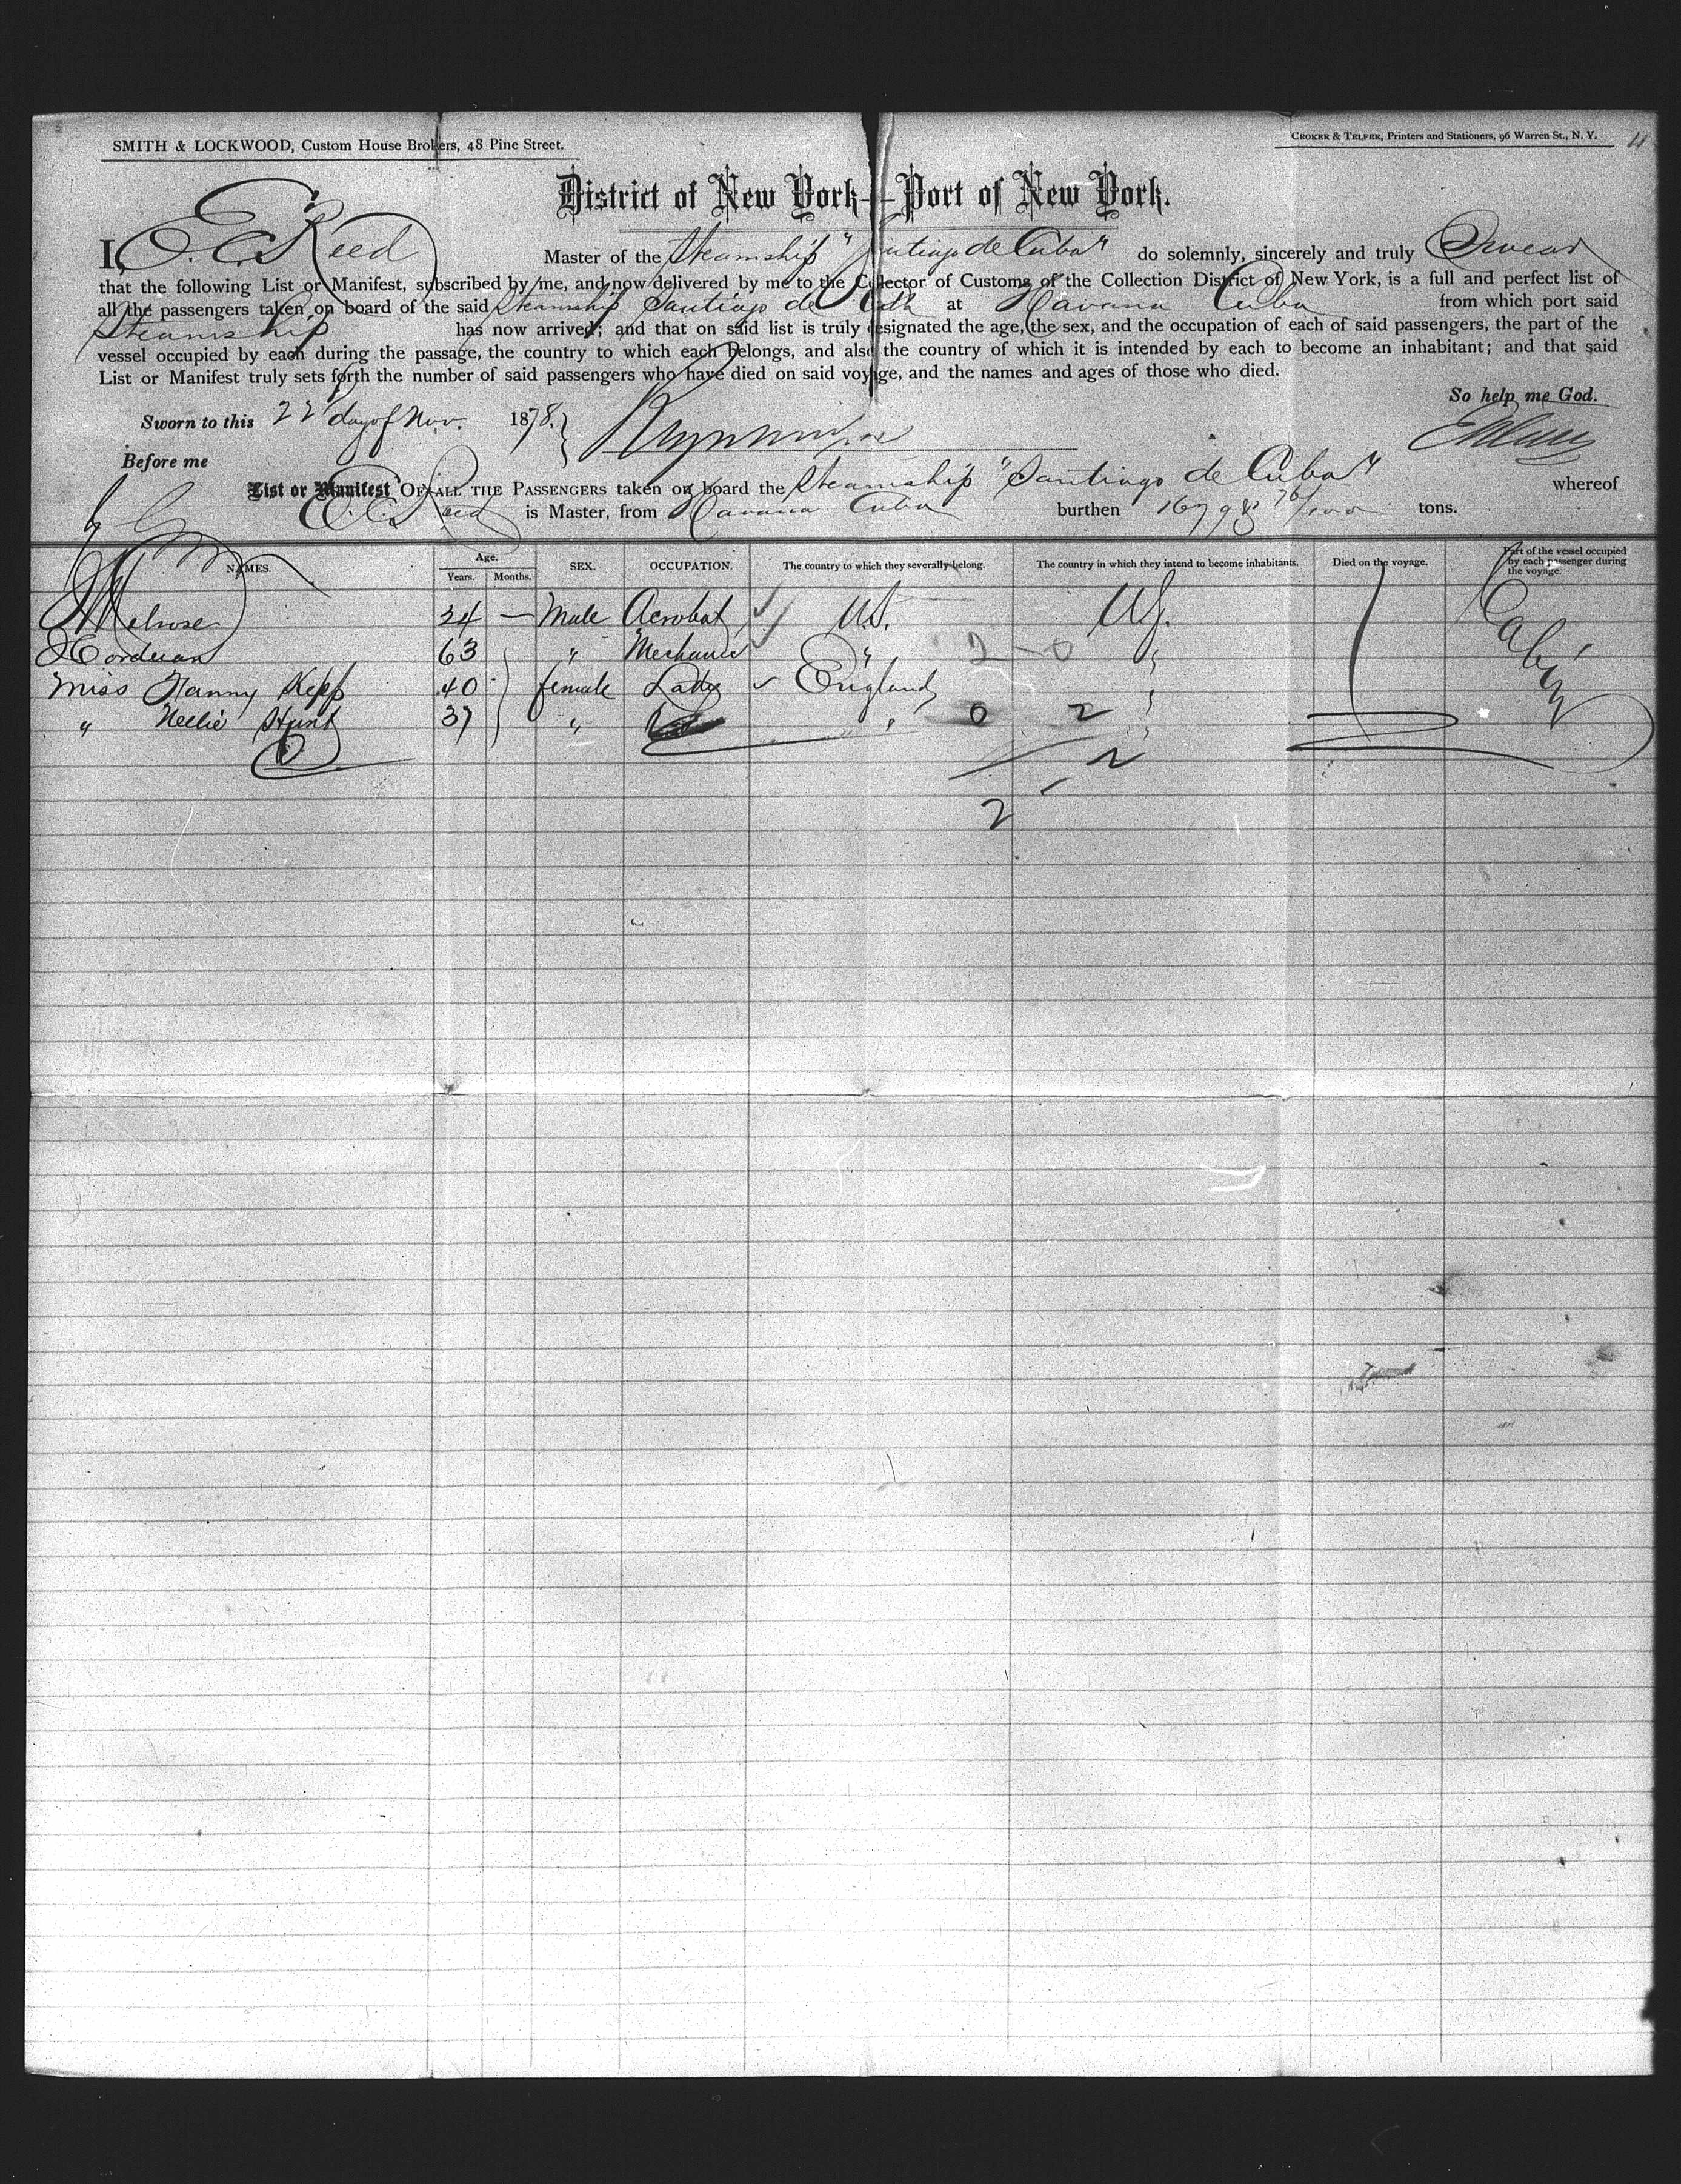 SMITH & LOCKWOOD, Custom House Brokers, 48 Pine Street.
CROKER & TELFER, Printers and Stationers, 96 Warren St., N. Y.
District of New York—Port of New York.
I, E. C. Reed Master of the Steamship "Santiago de Cuba" do solemnly, sincerely and truly Swear
that the following List or Manifest, subscribed by me, and now delivered by me to the Collector of Customs of the Collection District of New York, is a full and perfect list of
all the passengers taken on board of the said Steamship Santiago de Cuba at Havana Cuba from which port said
Steamship has now arrived; and that on said list is truly designated the age, the sex, and the occupation of each of said passengers, the part of the
vessel occupied by each during the passage, the country to which each belongs, and also the country of which it is intended by each to become an inhabitant; and that said
List or Manifest truly sets forth the number of said passengers who have died on said voyage, and the names and ages of those who died.
So help me God.
Sworn to this 22 day of Nov. 1878.
Before me
List or Manifest OF ALL THE PASSENGERS taken on board the Steamship "Santiago de Cuba" whereof
E. C. Reed is Master, from Havana Cuba burthen 1679 76/100 tons.
NAMES. Age. Years. Months. SEX. OCCUPATION. The country to which they severally belong. The country in which they intend to become inhabitants. Died on the voyage. Part of the vessel occupied by each passenger during the voyage.
Melrose 24 — Male Acrobat U.S. U.S. Cabin
Corduan 63 " Mechanic " 2 - 0 "
Miss Fanny Kepp 40 female Lady England "
" Nellie Hunt 37 " " 0 2 "
2
2